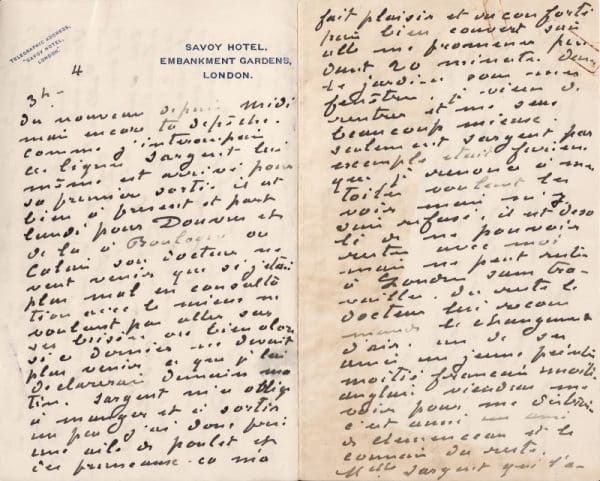 TELEGRAPHIC ADDRESS,
"SAVOY HOTEL,
LONDON."
SAVOY HOTEL,
EMBANKMENT GARDENS,
LONDON.
4
3h –
du nouveau depuis midi
mais encore ta depêche.
comme j'interrompais
ces lignes Sargent lui
même est arrivé pour
sa première sortie il est
bien à present et part
lundi pour Douvres et
de la à Boulogne ou
Calais son docteur ne
veut venir que si j'étais
plus mal en consulta
tion avec le mien ne
voulant pas aller sur
ses brisées ou bien alors
si ce dernier ne devait
plus venir ce que j'lui
declarerai demain ma
tin. Sargent m'a obligé
à manger et à sortir
un peu j'ai donc pris
une aile de poulet et
des pruneaux. ca m'a
fait plaisir et reconforté
puis bien couvert suis
allé me promener pen
dant 20 minutes dans
le jardin sous mes
fenêtres. je viens de
rentrer et me sens
beaucoup mieux.
seulement Sargent par
exemple était furieux
que j'renonce à ma
toile voulant les
voir mais m'y
suis refusé. il est deso
lé de ne pouvoir
rester avec moi
mais ne peut rester
à Londres sans tra
vailler. du reste le
docteur lui recom
mande le changement
d'air. un de ses
amis un jeune peintre
moitié français moitié
anglais viendra me
voir pour me distraire
c'est aussi un ami
de Clemenceau et le
connais du reste.
Melle Sargent qui s'a-